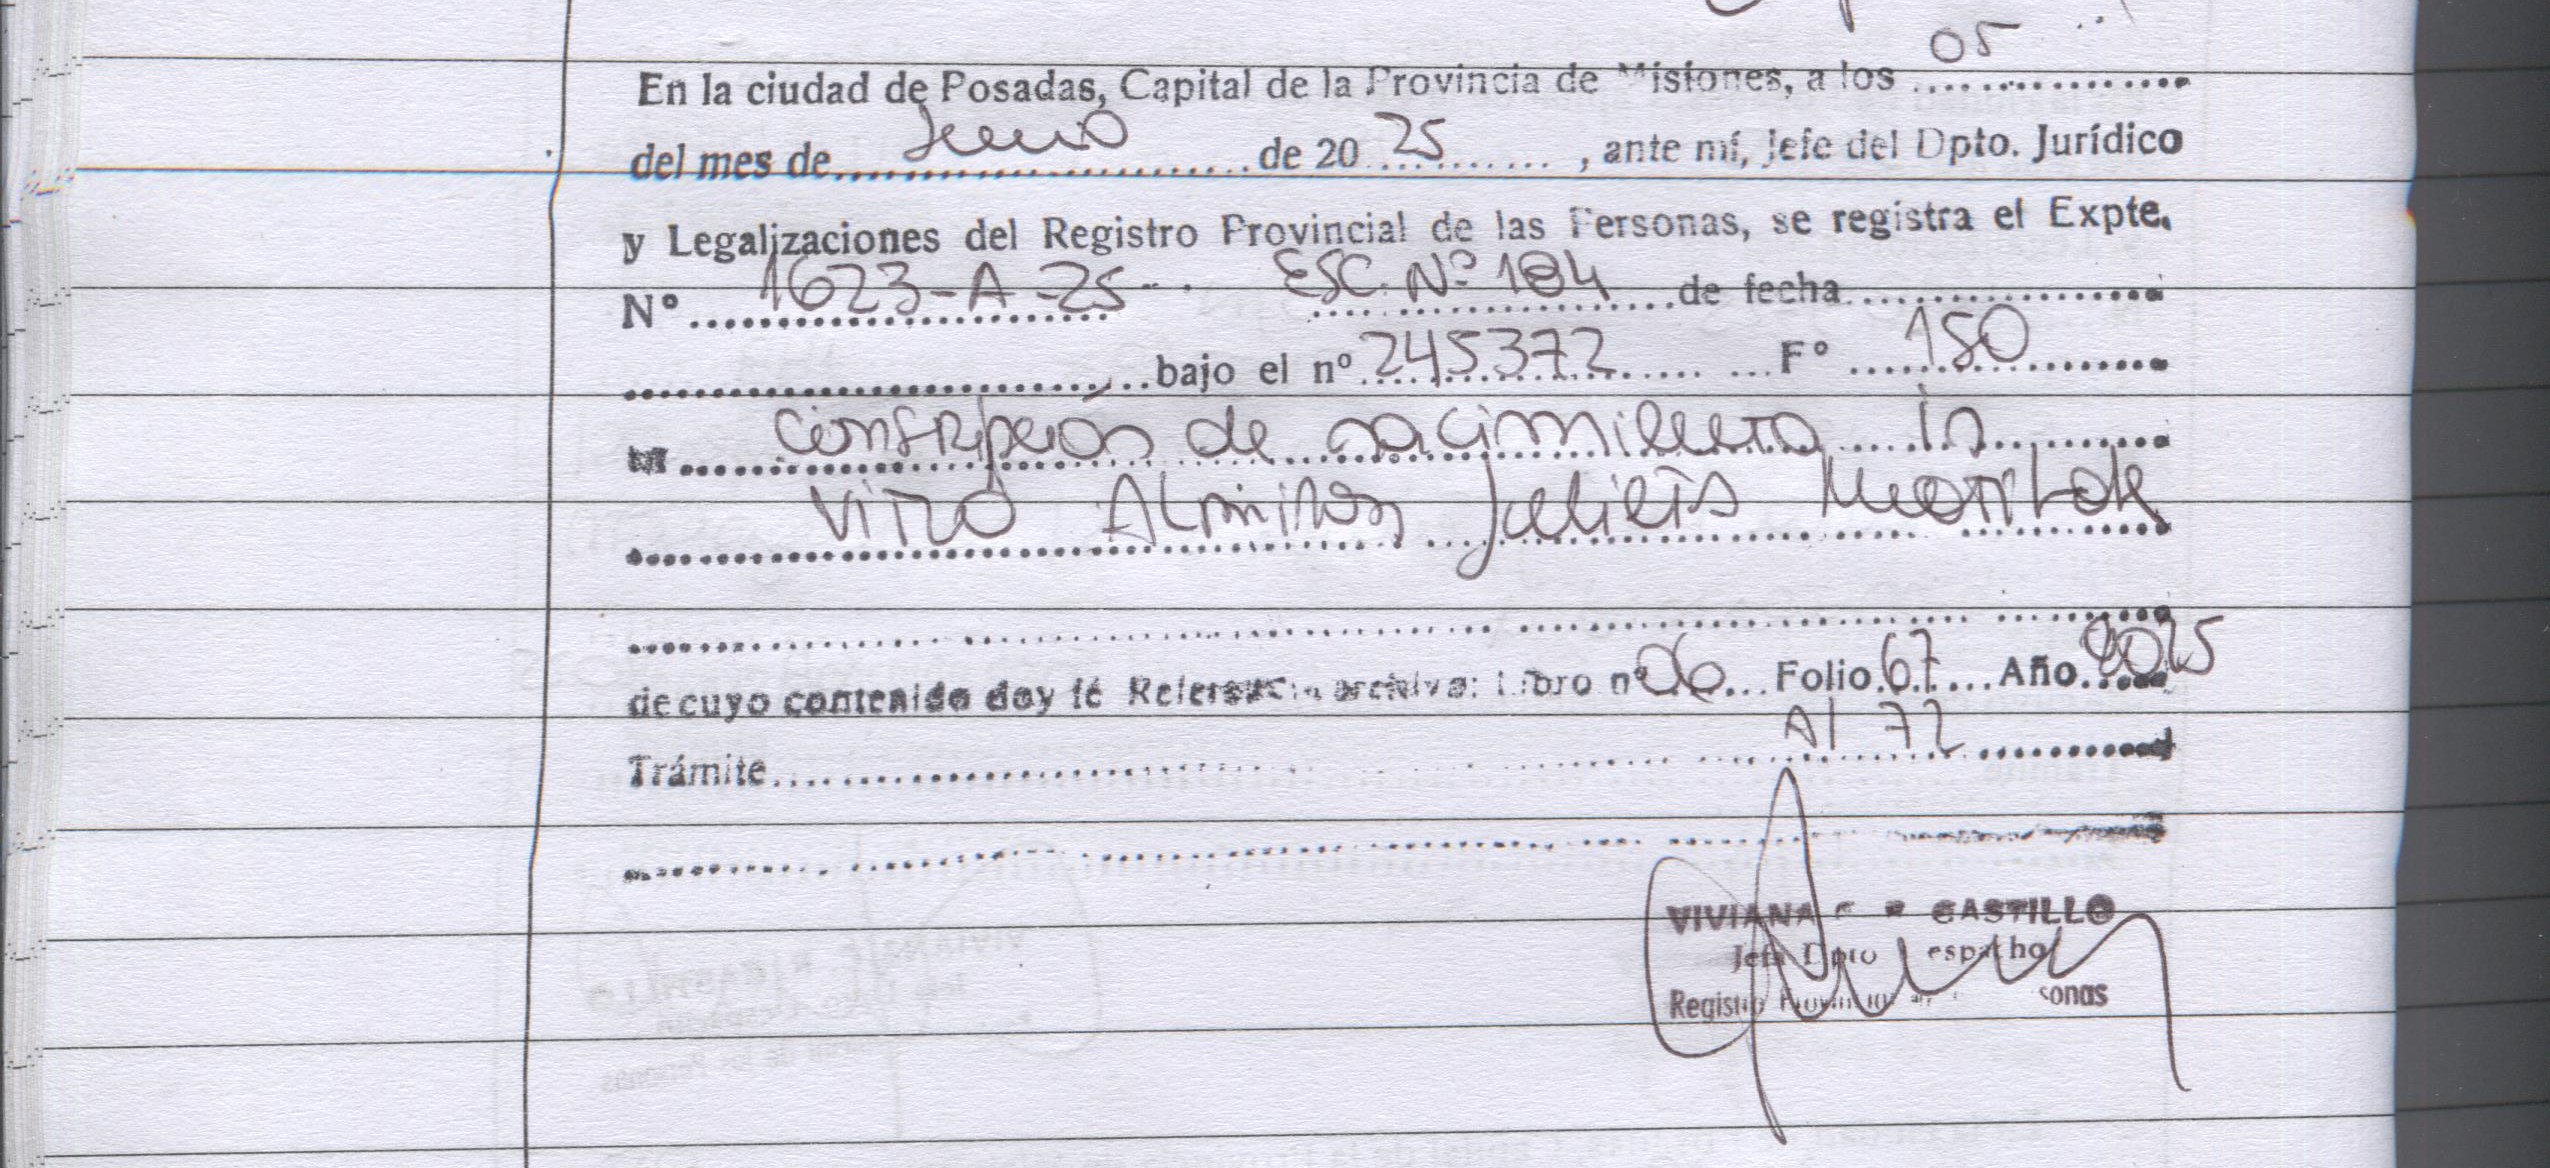 05
En la ciudad de Posadas, Capital de la Provincia de Misiones, a los
del mes de Junio de 20 25, ante mí, Jefe del Dpto. Jurídico
y Legalizaciones del Registro Provincial de las Personas, se registra el Expte.
Nº 1623-A-25 ESC. Nº 184 de fecha
bajo el nº 245372 Fº 150
de nacimiento in
vitro Almiron
de cuyo contenido doy fé Referencia archivo: Libro nº 06 Folio 67 Año 2025
Al 72
Trámite
VIVIANA CASTILLO
Jefa Dpto
Registro